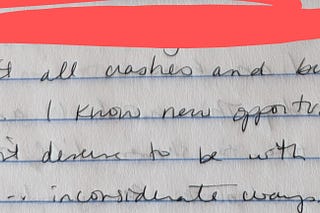 all crashes and bu
. I know new opportu
't deserve to be with
-- inconsiderate ways.